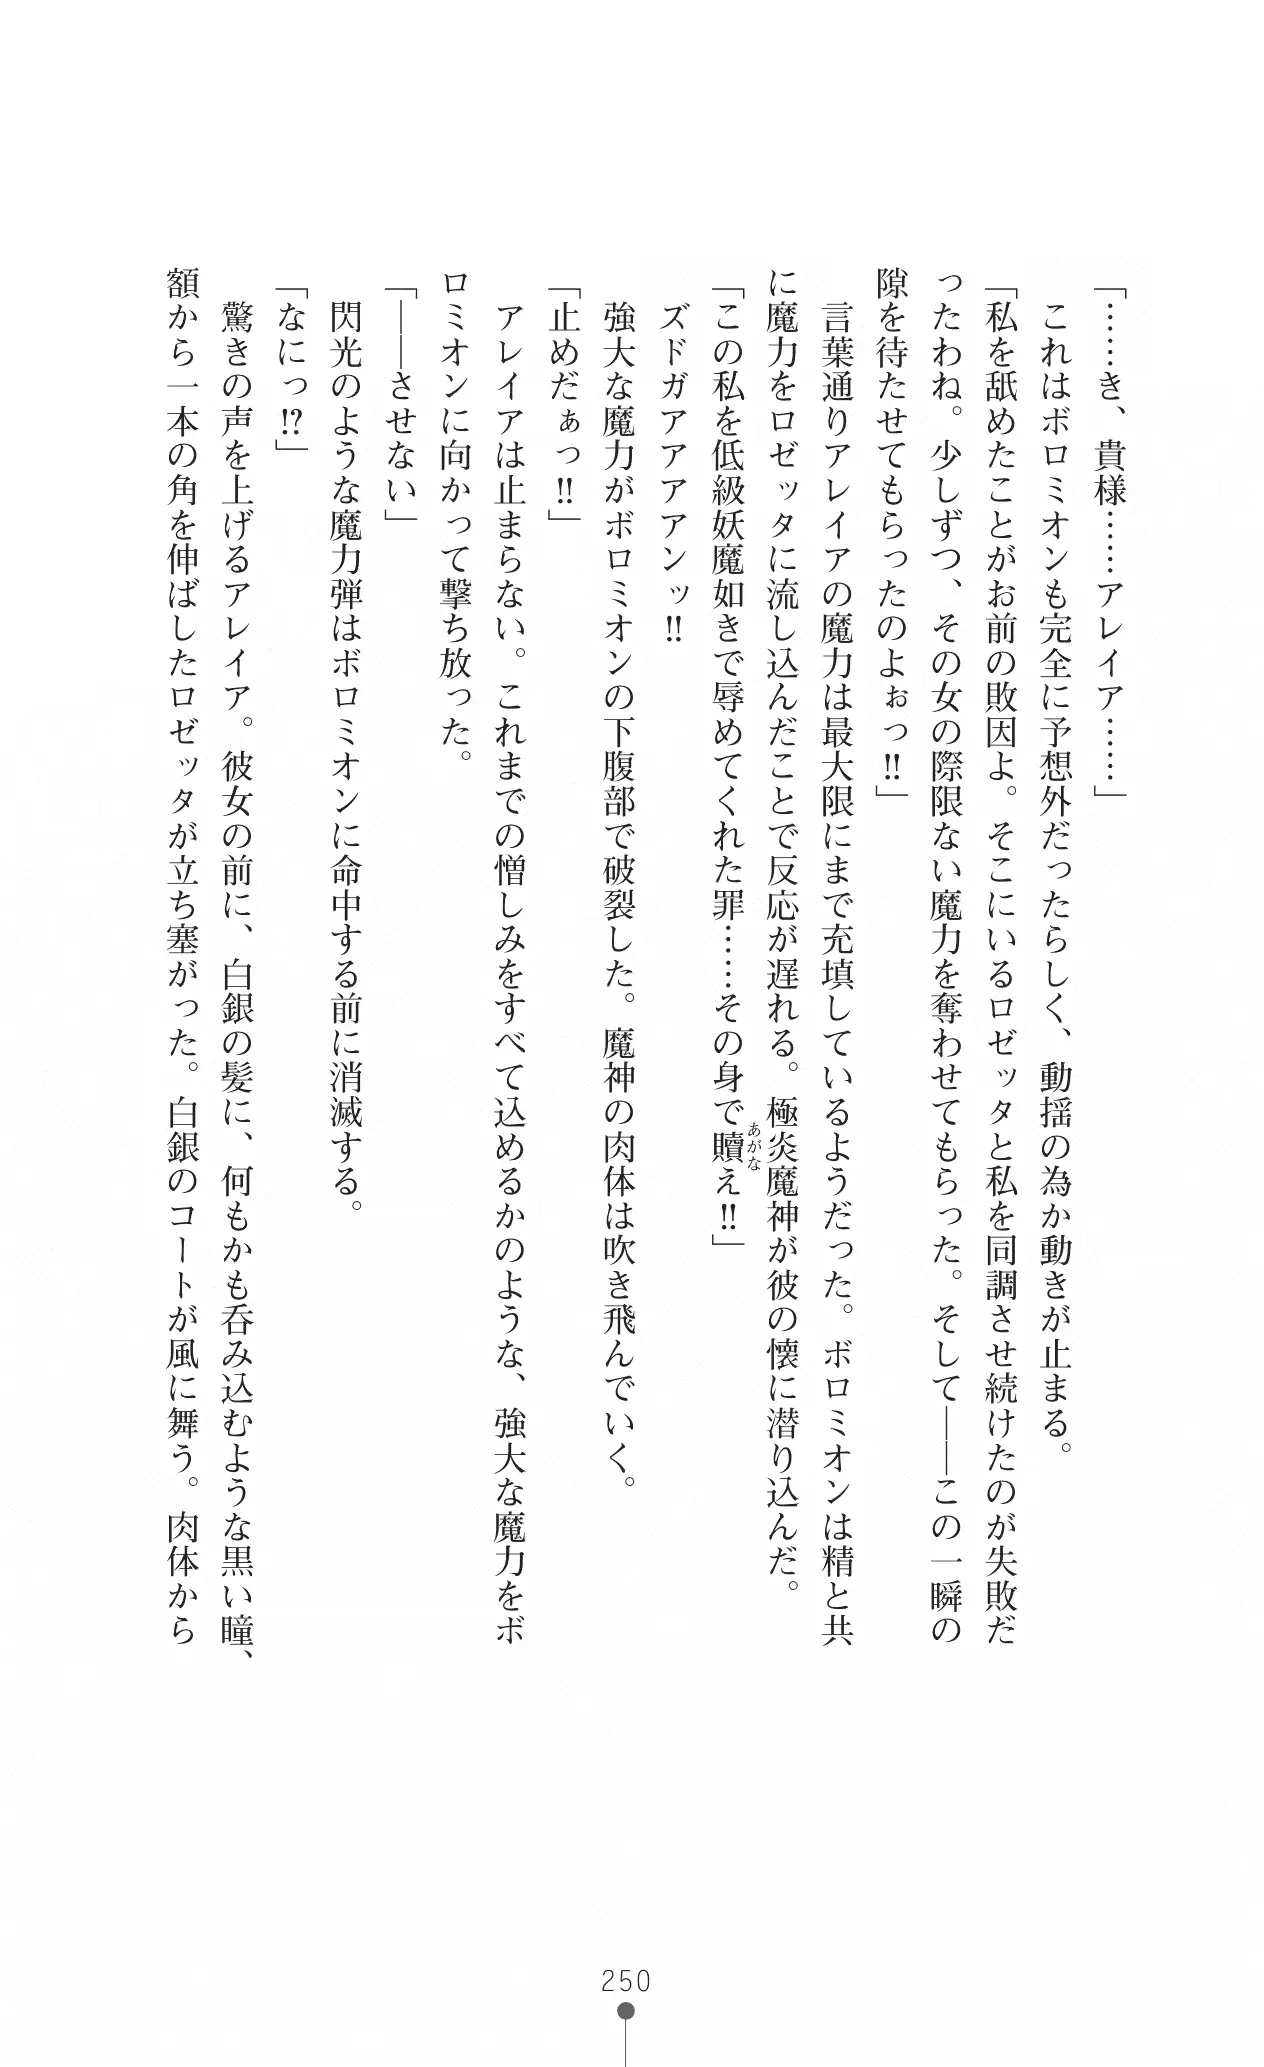 「……き、貴様……アレイア……」
　これはボロミオンも完全に予想外だったらしく、動揺の為か動きが止まる。
「私を舐めたことがお前の敗因よ。そこにいるロゼッタと私を同調させ続けたのが失敗だ
ったわね。少しずつ、その女の際限ない魔力を奪わせてもらった。そして――この一瞬の
隙を待たせてもらったのよぉっ!!」
　言葉通りアレイアの魔力は最大限にまで充填しているようだった。ボロミオンは精と共
に魔力をロゼッタに流し込んだことで反応が遅れる。極炎魔神が彼の懐に潜り込んだ。
「この私を低級妖魔如きで辱めてくれた罪……その身で贖え!!」
あがな
　ズドガアアアアンッ!!
　強大な魔力がボロミオンの下腹部で破裂した。魔神の肉体は吹き飛んでいく。
「止めだぁっ!!」
　アレイアは止まらない。これまでの憎しみをすべて込めるかのような、強大な魔力をボ
ロミオンに向かって撃ち放った。
「――させない」
　閃光のような魔力弾はボロミオンに命中する前に消滅する。
「なにっ!?」
　驚きの声を上げるアレイア。彼女の前に、白銀の髪に、何もかも呑み込むような黒い瞳、
額から一本の角を伸ばしたロゼッタが立ち塞がった。白銀のコートが風に舞う。肉体から
250